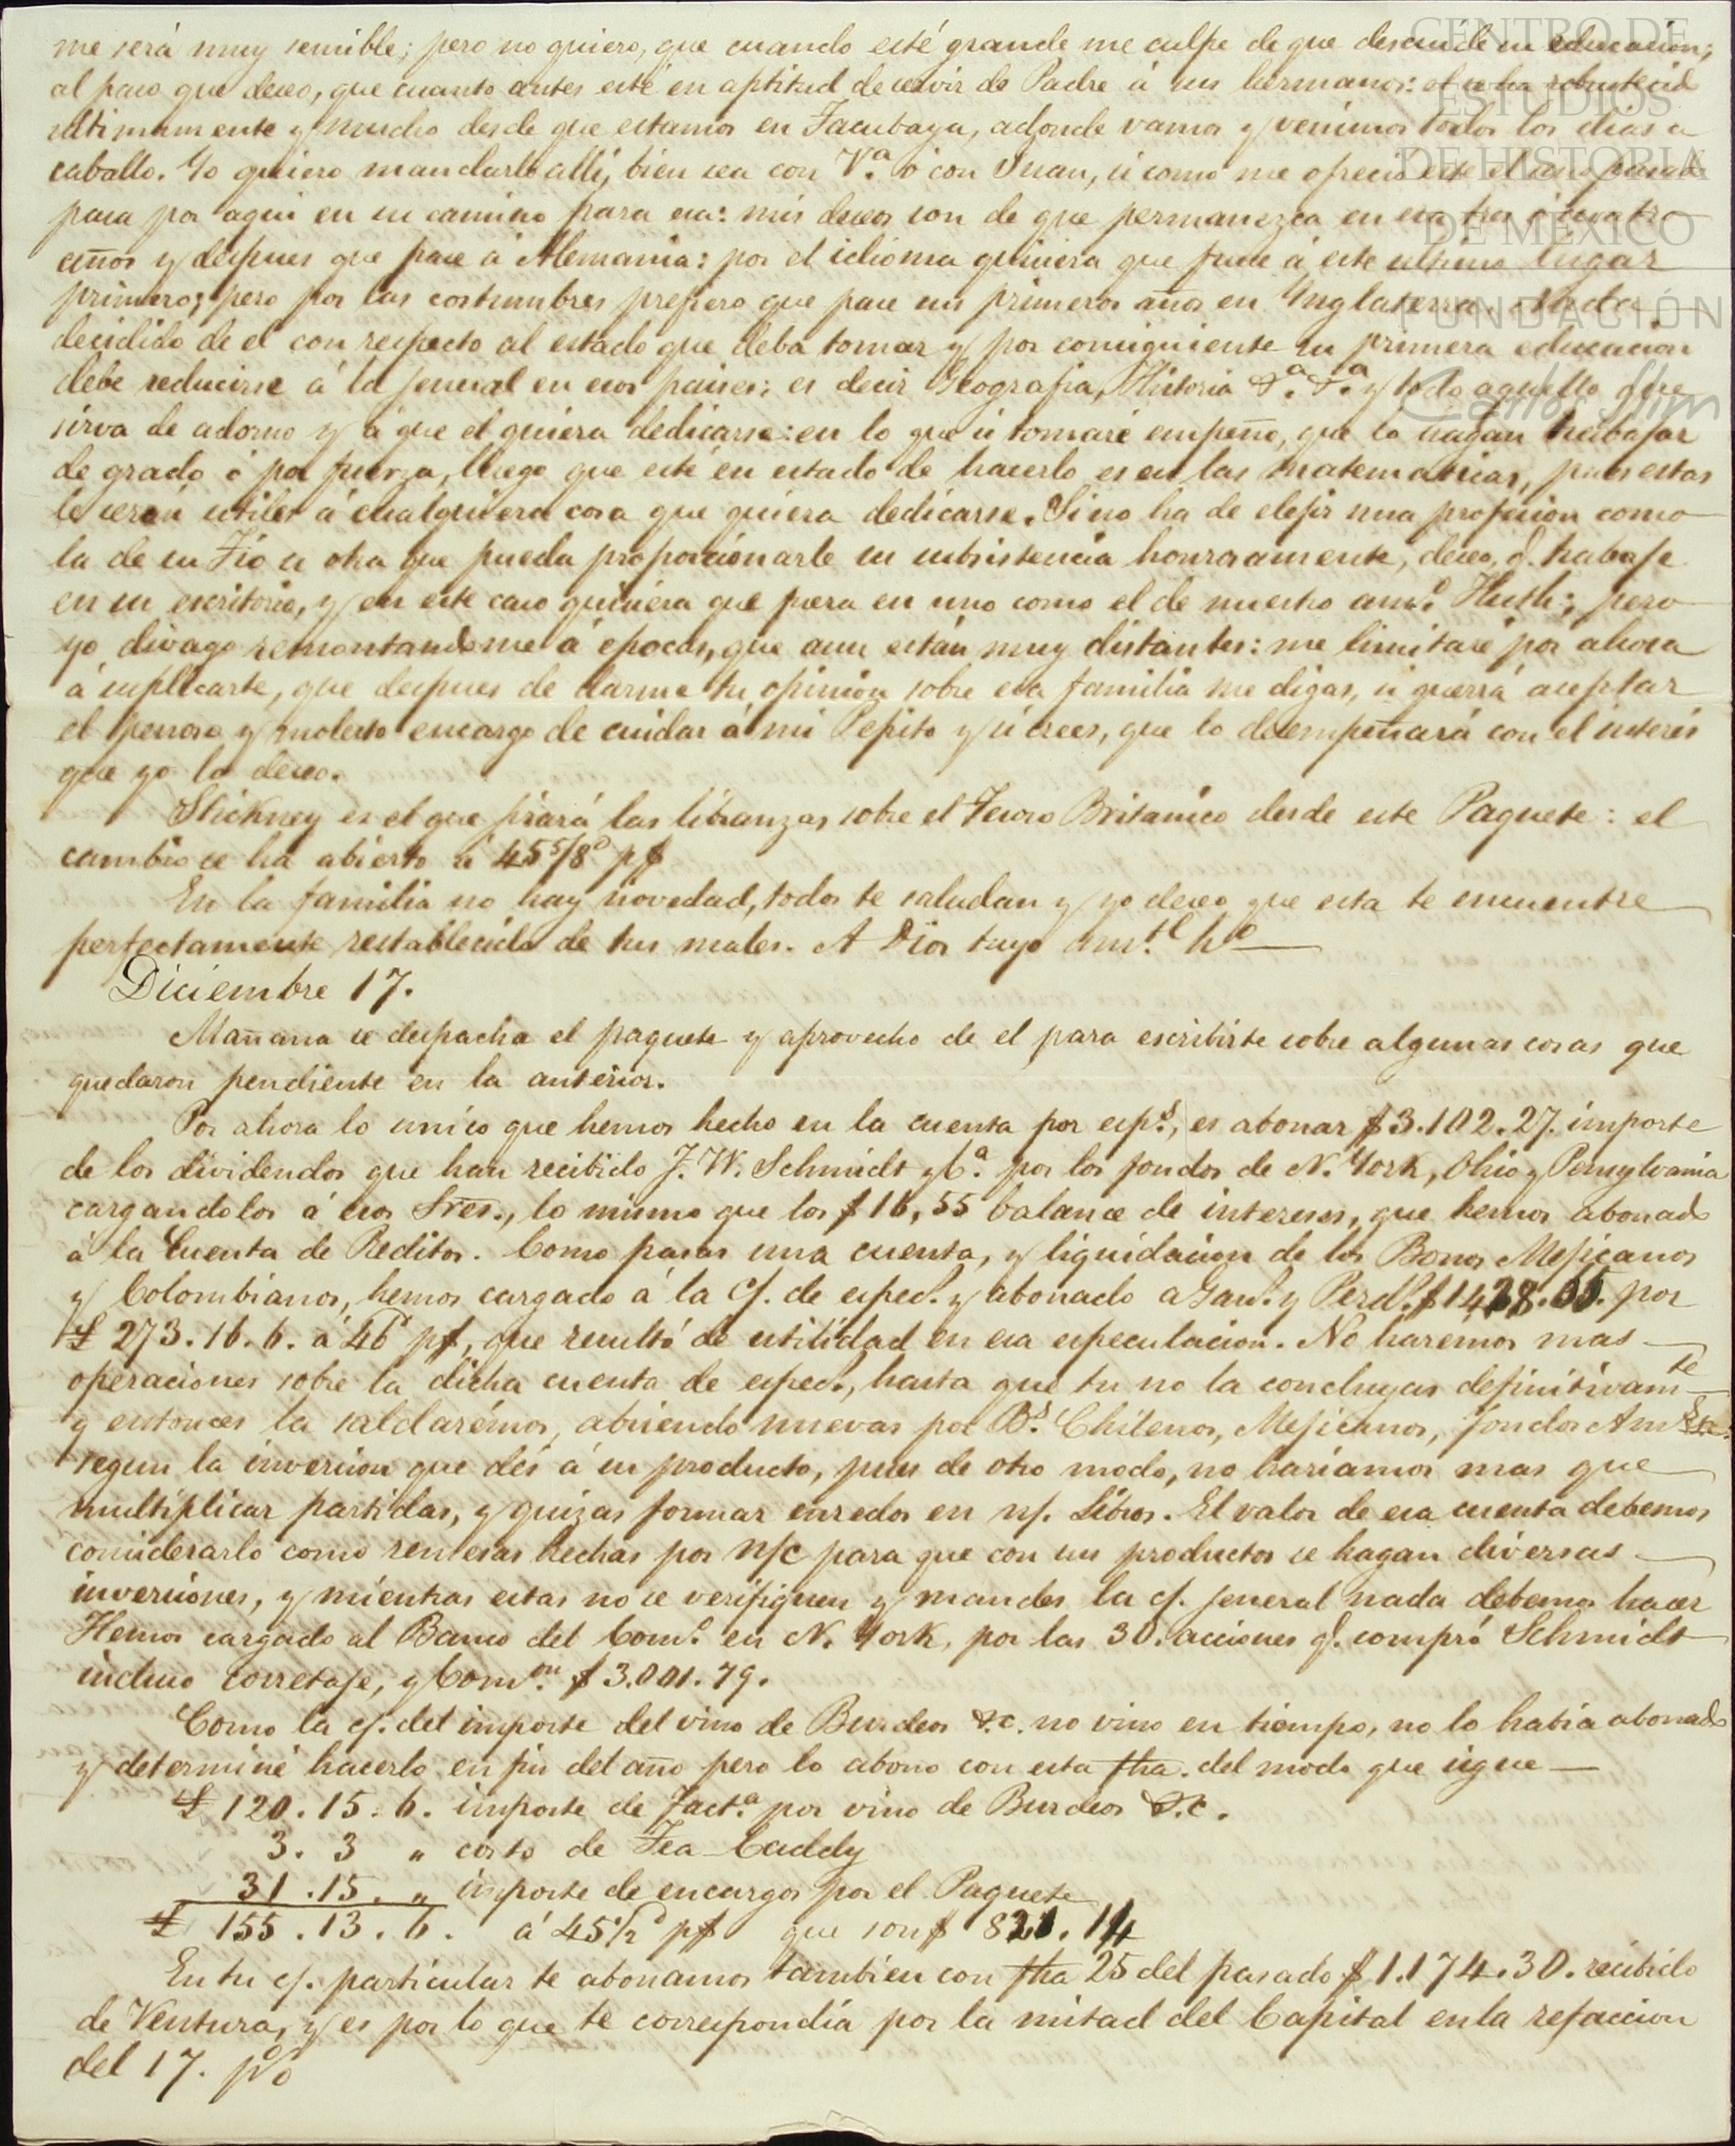 me será muy sensible; pero no quiero, que cuando esté grande me culpe de que descuidé su educacion;
al paso que deseo, que cuanto antes esté en aptitud de servir de Padre á sus hermanos: el se ha robustecido
ultimamente y mucho desde que estamos en Tacubaya, adonde vamos y venimos todos los dias a
caballo. Yo quiero mandarlo allí, bien sea con V.ª ó con Juan, si como me ofreció este el año pasado
pasa por aqui en su camino para esa: mis deseos son de que permanezca en esa tres ó cuatro
años y despues que pase á Alemania: por el idioma quisiera que fuese á este ultimo lugar
primero; pero por las costumbres prefiero que pase sus primeros años en Inglaterra. Nada
decidido de el con respecto al estado que deba tomar y por consiguiente su primera educacion
debe reducirse á la jeneral en esos paises; es decir Geografia, Historia &.ª &.ª y todo aquello que
sirva de adorno y á que el quiera dedicarse: en lo que si tomaré empeño, que lo hagan trabajar
de grado ó por fuerza, luego que esté en estado de hacerlo es en las matematicas, pues estas
le seran utiles á cualquiera cosa que quiera dedicarse. Si no ha de elejir una profesion como
la de su Tio u otra que pueda proporcionarle su subsistencia honrosamente, deseo, q. trabaje
en un escritorio, y en este caso quisiera que fuera en uno como el de nuestro am.º Huth; pero
yo divago remontandome á épocas, que aun están muy distantes: me limitaré por ahora
á suplicarte, que despues de darme tu opinion sobre esa familia me digas, si querrá aceptar
el penoso y molesto encargo de cuidar á mi Pepito y si crees, que lo desempeñará con el interés
que yo lo deseo.
Stickney es el que jirará las libranzas sobre el Tesoro Britanico desde este Paquete: el
cambio se ha abierto á 45 5/8 d p$
En la familia no hay novedad, todos te saludan y yo deseo que esta te encuentre
perfectamente restablecido de tus males. A Dios tuyo am.te h.o
Diciembre 17.
Mañana se despacha el paquete y aprovecho de el para escribirte sobre algunas cosas que
quedaron pendiente en la anterior.
Por ahora lo unico que hemos hecho en la cuenta por esp.s, es abonar $3.102.27. importe
de los dividendos que han recibido J. W. Schmidt y C.ª por los fondos de N. York, Ohio y Pensylvania
cargandolos á esos Sres., lo mismo que los $16,55 balance de intereses, que hemos abonado
á la Cuenta de Reditos. Como pasas una cuenta, y liquidacion de los Bonos Mejicanos
y Colombianos, hemos cargado á la C/. de espec.s y abonado a Gan.s y Perd.s $1428.55. por
£ 273.16.6. á 46d p$, que resultó de utilidad en esa especulacion. No haremos mas
operaciones sobre la dicha cuenta de espec.s, hasta que tu no la concluyas definitivam.te
y entonces la saldarémos, abriendo nuevas por B.s Chilenos, Mejicanos, fondos Am.s &c.
segun la inversion que dés á su producto, pues de otro modo, no hariamos mas que
multiplicar partidas, y quizas formar enredos en n/. Libros. El valor de esa cuenta debemos
considerarlo como remesas hechas por n/c para que con sus productos se hagan diversas
inversiones, y mientras estas no se verifiquen y mandes la c/. jeneral nada debemos hacer
Hemos cargado al Banco del Com.o en N. York, por las 30. acciones q. compró Schmidt
incluso corretaje, y Com.on $ 3.001.79.
Como la c/. del importe del vino de Burdeos &.c. no vino en tiempo, no lo habia abonado
y determiné hacerlo en fin del año pero lo abono con esta fha. del modo que sigue
£ 120.15.6. importe de Fact.ª por vino de Burdeos &.c.
3. 3 „ costo de Tea Caddy
31.15. „ importe de encargos por el Paquete
£ 155.13.6. á 45 1/2 d p$ que son $ 821.14
En tu c/. particular te abonamos tambien con fha 25 del pasado $1.174.30. recibido
de Ventura, y es por lo que te correspondia por la mitad del Capital en la refaccion
del 17. p%
CENTRO DE
ESTUDIOS
DE HISTORIA
DE MEXICO
FUNDACIÓN
Carlos Slim